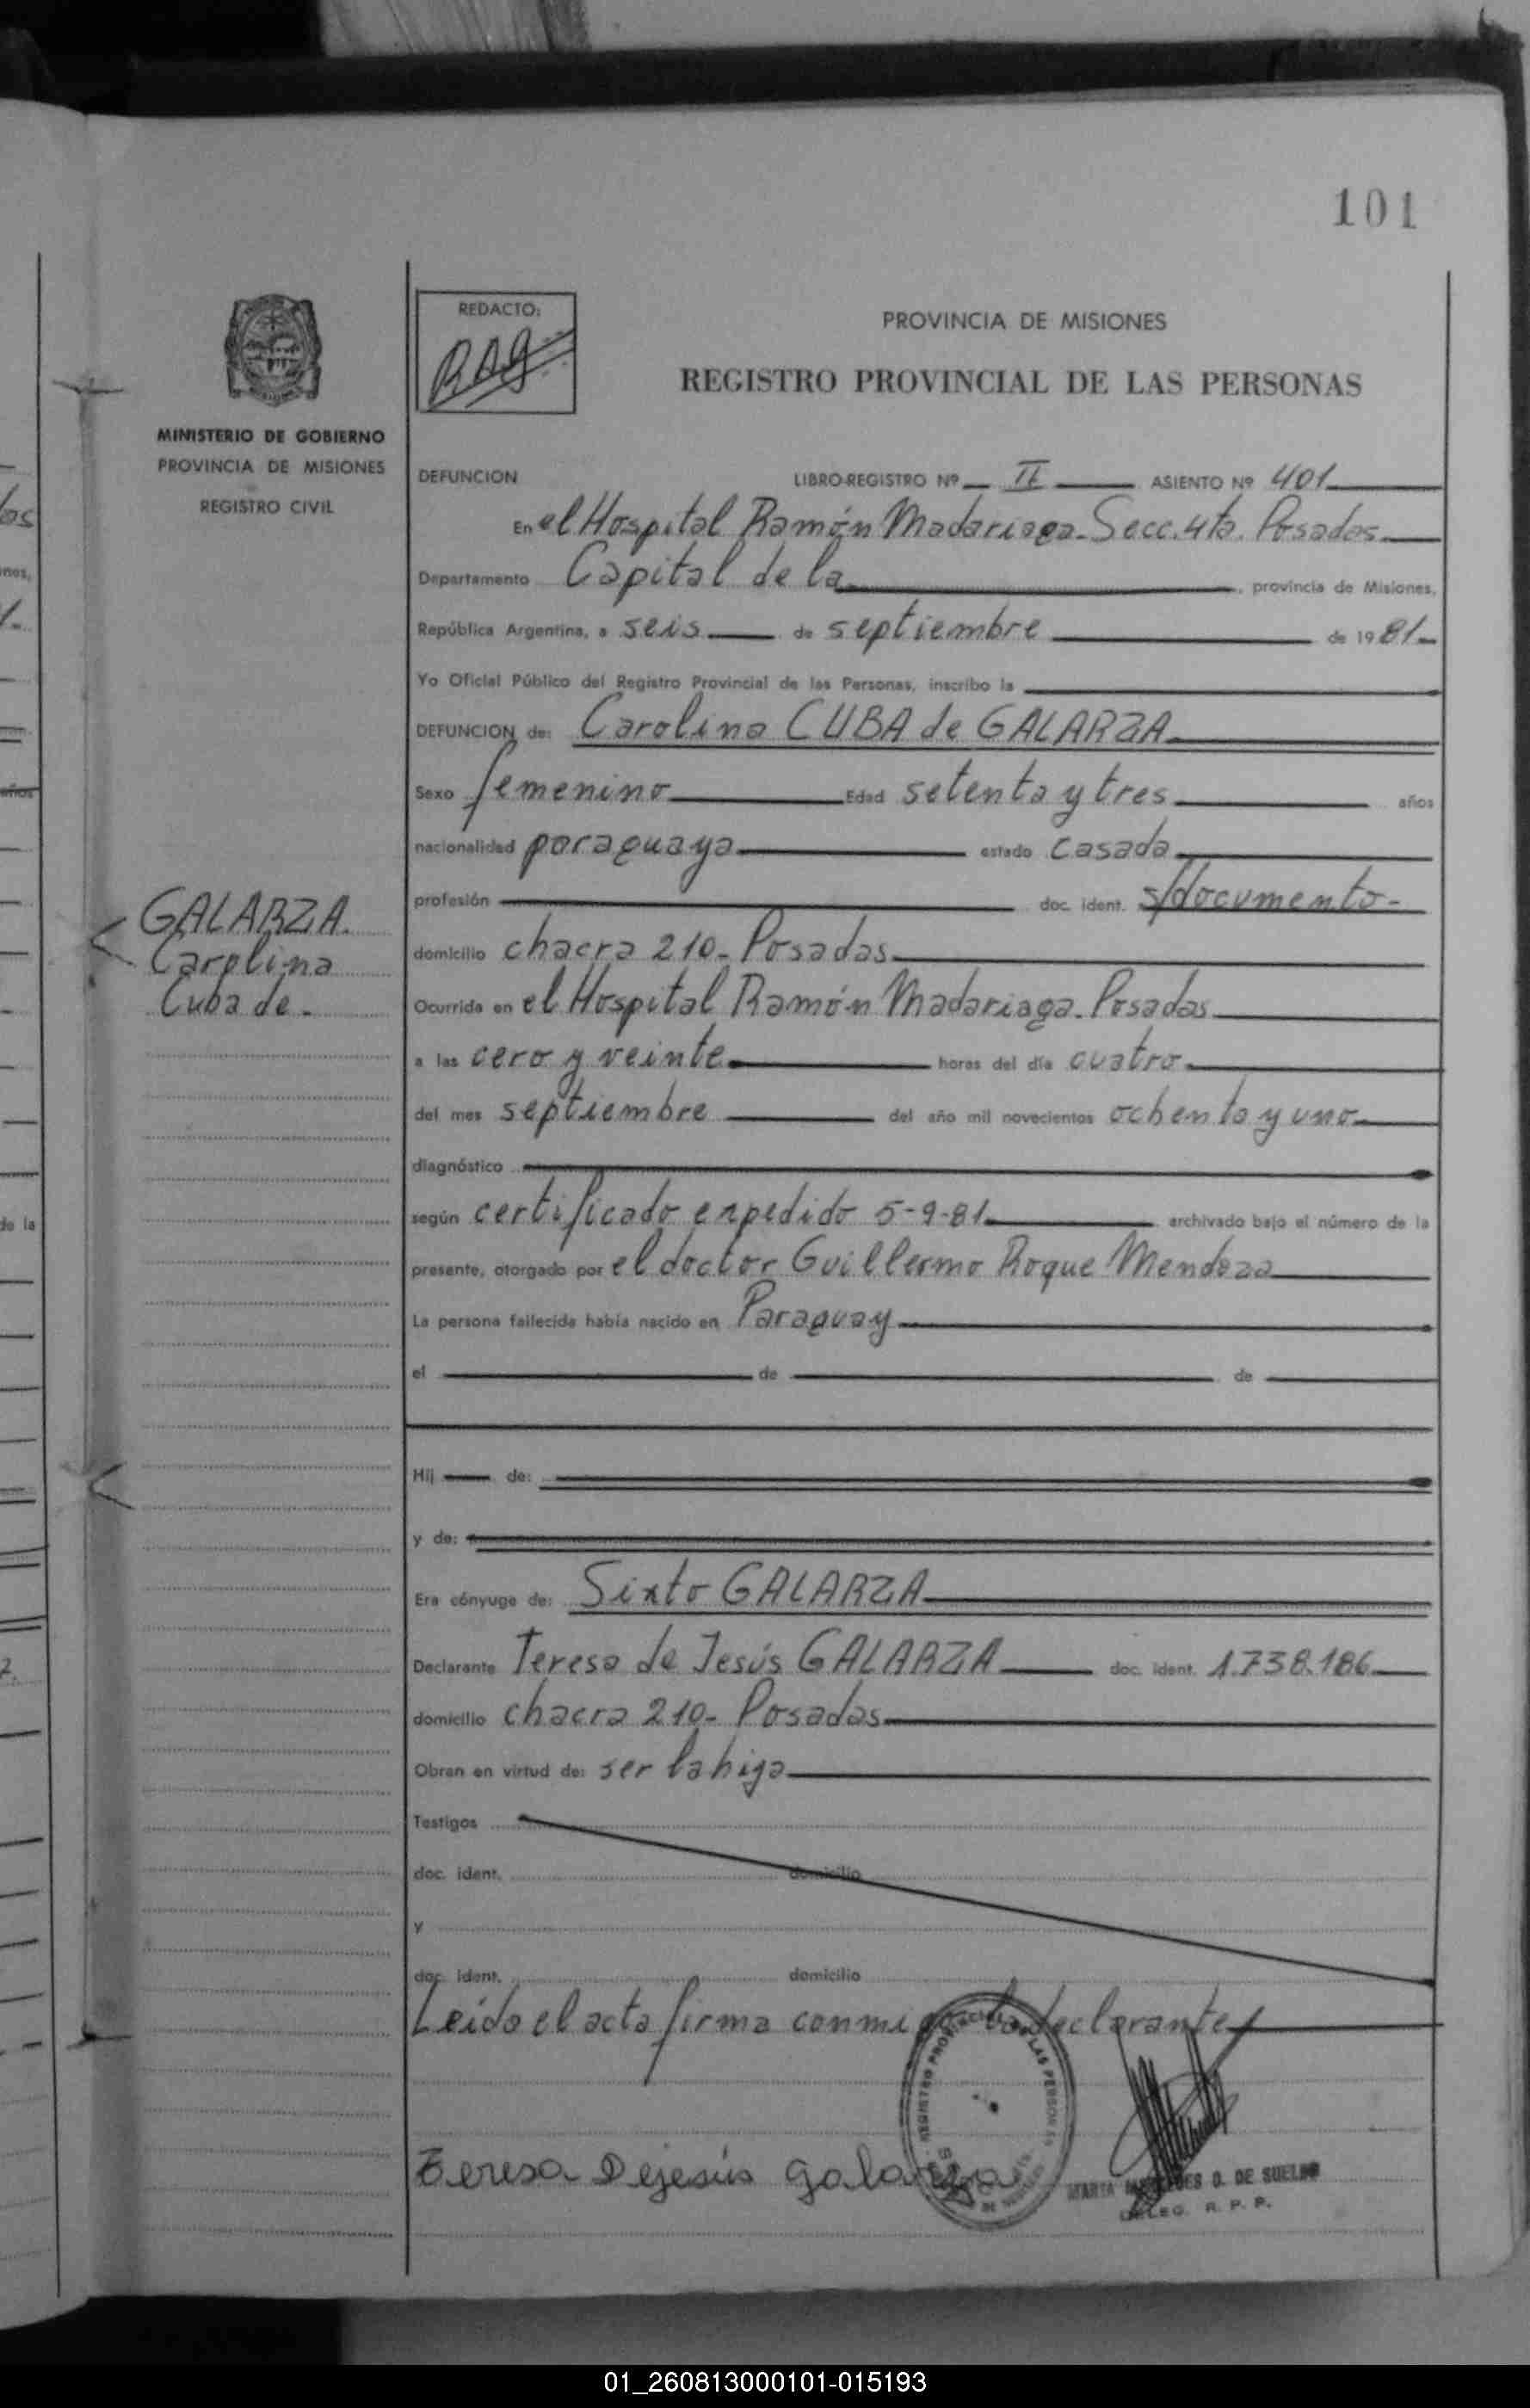 101
REDACTO:
PROVINCIA DE MISIONES
REGISTRO PROVINCIAL DE LAS PERSONAS
MINISTERIO DE GOBIERNO
PROVINCIA DE MISIONES
REGISTRO CIVIL
DEFUNCION LIBRO-REGISTRO Nº II ASIENTO Nº 401
En el Hospital Ramón Madariaga. Secc. 4ta. Posadas
Departamento Capital de la, provincia de Misiones,
República Argentina, a seis de septiembre de 1981
Yo Oficial Público del Registro Provincial de las Personas, inscribo la
DEFUNCION de: Carolina CUBA de GALARZA
Sexo femenino Edad setenta y tres años
nacionalidad paraguaya estado casada
profesión doc. ident. s/documento-
GALARZA.
Carolina
Cuba de.
domicilio chacra 210- Posadas
Ocurrida en el Hospital Ramón Madariaga. Posadas
a las cero y veinte horas del día cuatro
del mes septiembre del año mil novecientos ochenta y uno
diagnóstico
según certificado expedido 5-9-81 archivado bajo el número de la
presente, otorgado por el doctor Guillermo Roque Mendoza
La persona fallecida había nacido en Paraguay
el de de
Hij de:
y de:
Era cónyuge de: Sixto GALARZA
Declarante Teresa de Jesús GALARZA doc. ident. 1.738.186
domicilio chacra 210- Posadas
Obran en virtud de: ser la hija
Testigos
doc. ident. domicilio
y
doc. ident. domicilio
Leído el acta firma conmigo la declarante
Teresa Dejesús galarza
MARIA MERCEDES O. DE SUELDO
DELEG. R. P. P.
01_260813000101-015193